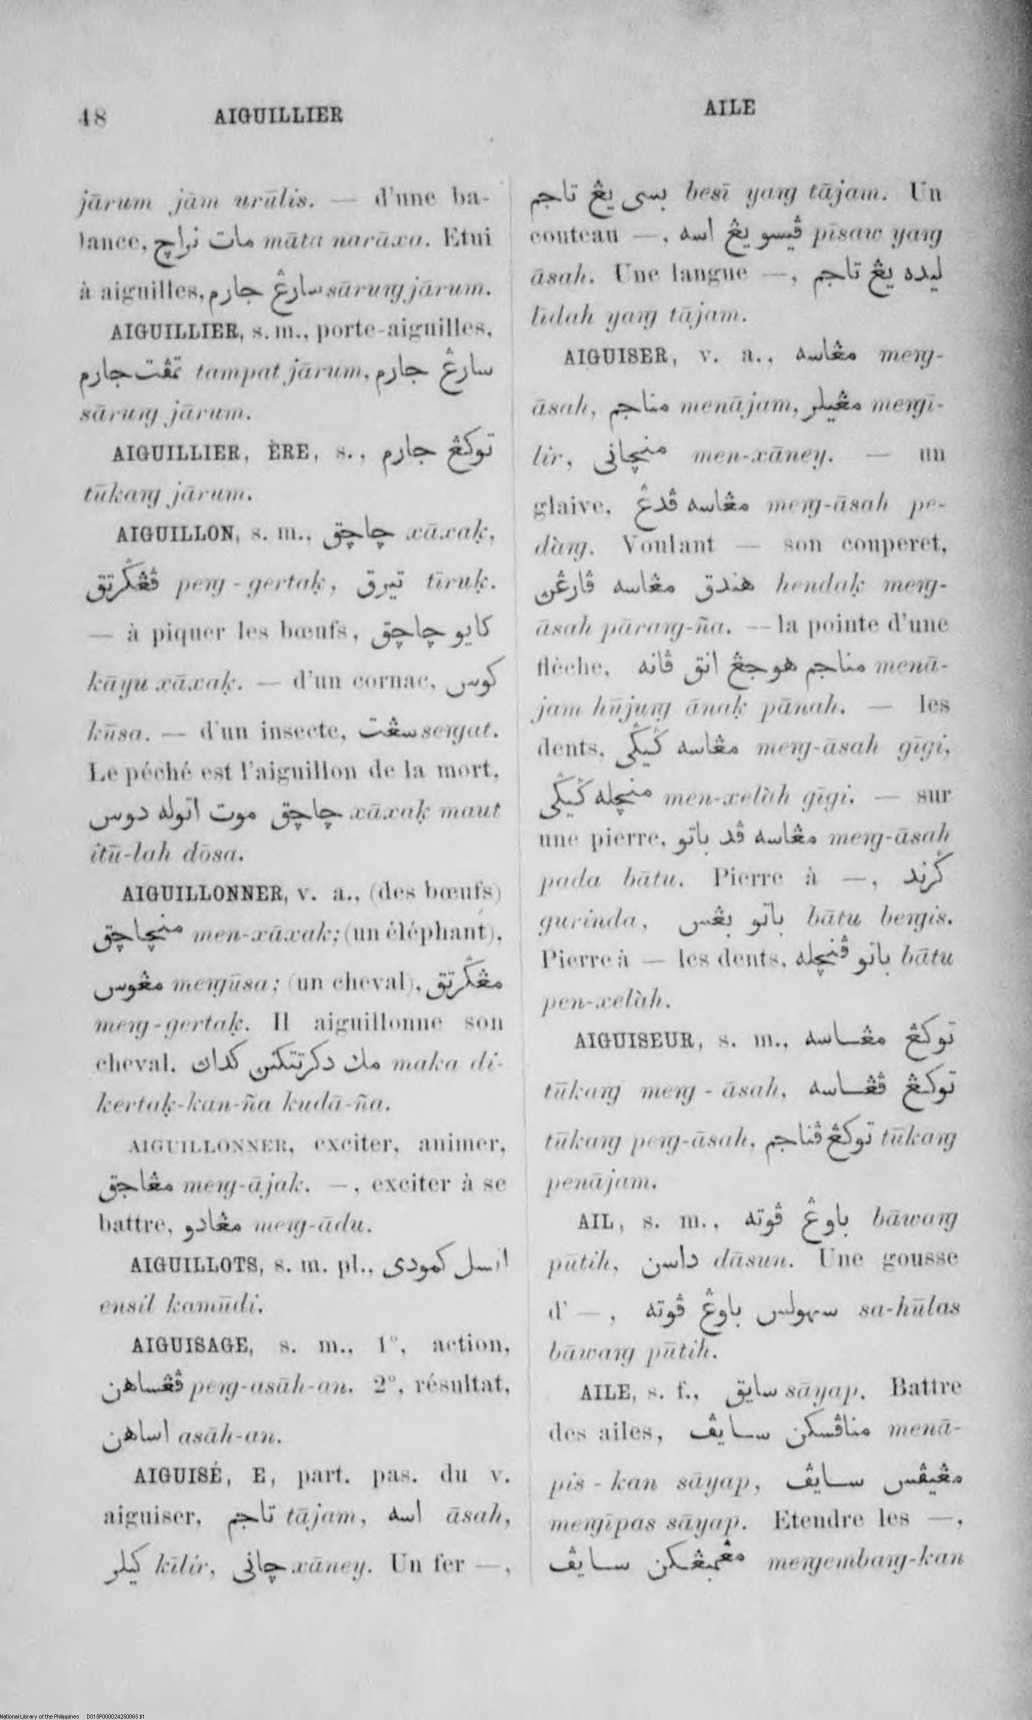 48 AIGUILLIER
AILE
jārum jām urūlis. — d'une ba-
lance, مات نراچ māta narāxa. Etui
à aiguilles, سارڠ جارم sārung jārum.
AIGUILLIER, s. m., porte-aiguilles,
تمڤت جارم tampat jārum, سارڠ جارم
sārung jārum.
AIGUILLIER, ÈRE, s., توکڠ جارم
tūkang jārum.
AIGUILLON, s. m., چاچق xāxaḳ,
ڤڠݢرتق peng-gertaḳ, تيرق tīruḳ.
— à piquer les bœufs, کايو چاچق
kāyu xāxaḳ. — d'un cornac, کوس
kūsa. — d'un insecte, سڠت sengat.
Le péché est l'aiguillon de la mort,
چاچق موت اتوله دوس xāxaḳ maut
itū-lah dōsa.
AIGUILLONNER, v. a., (des bœufs)
منچاچق men-xāxak; (un éléphant),
مڠوس mengūsa; (un cheval), مڠݢرتق
meng-gertaḳ. Il aiguillonne son
cheval, مك دکرتتکنن کداڽ maka di-
kertaḳ-kan-ña kudā-ña.
AIGUILLONNER, exciter, animer,
مڠاجق meng-ājak. —, exciter à se
battre, مڠادو meng-ādu.
AIGUILLOTS, s. m. pl., انسل کمودى
ensil kamūdi.
AIGUISAGE, s. m., 1°, action,
ڤڠساهن peng-asāh-an. 2°, résultat,
اساهن asāh-an.
AIGUISÉ, E, part. pas. du v.
aiguiser, تاجم tājam, اسه āsah,
کيلر kīlir, چانى xāney. Un fer —,
بسى يڠ تاجم besī yang tājam. Un
couteau —, ڤيسو يڠ اسه pīsaw yang
āsah. Une langue —, ليده يڠ تاجم
līdah yang tājam.
AIGUISER, v. a., مڠاسه meng-
āsah, مناجم menājam, مڠيلر mengī-
lir, منچانى men-xāney. — un
glaive, مڠاسه ڤدڠ meng-āsah pe-
dàng. Voulant — son couperet,
هندق مڠاسه ڤارڠن hendaḳ meng-
āsah pārang-ña. — la pointe d'une
flèche, مناجم هوجڠ انق ڤانه menā-
jam hūjung ānaḳ pānah. — les
dents, مڠاسه ݢيݢى meng-āsah gīgi,
منچله ݢيݢى men-xelàh gīgi. — sur
une pierre, مڠاسه ڤد باتو meng-āsah
pada bātu. Pierre à —, ݢرند
gurinda, باتو بڠس bātu bengis.
Pierre à — les dents, باتو ڤنچله bātu
pen-xelàh.
AIGUISEUR, s. m., توکڠ مڠاسه
tūkang meng-āsah, توکڠ ڤڠاسه
tūkang peng-āsah, توکڠ ڤناجم tūkang
penājam.
AIL, s. m., باوڠ ڤوته bāwang
pūtih, داسن dāsun. Une gousse
d' —, سهولس باوڠ ڤوته sa-hūlas
bāwang pūtih.
AILE, s. f., سايق sāyap. Battre
des ailes, مناڤسکن سايڤ menā-
pis-kan sāyap, مڠيڤس سايڤ
mengīpas sāyap. Etendre les —,
مڠمبڠکن سايڤ mengembang-kan